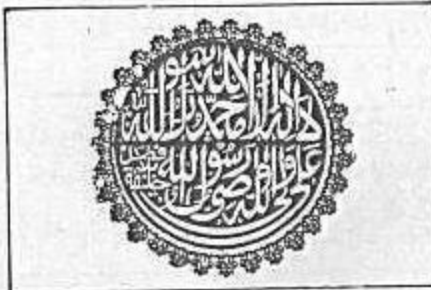 لا اله الا الله محمد رسول الله
علی ولی الله وصی رسول الله